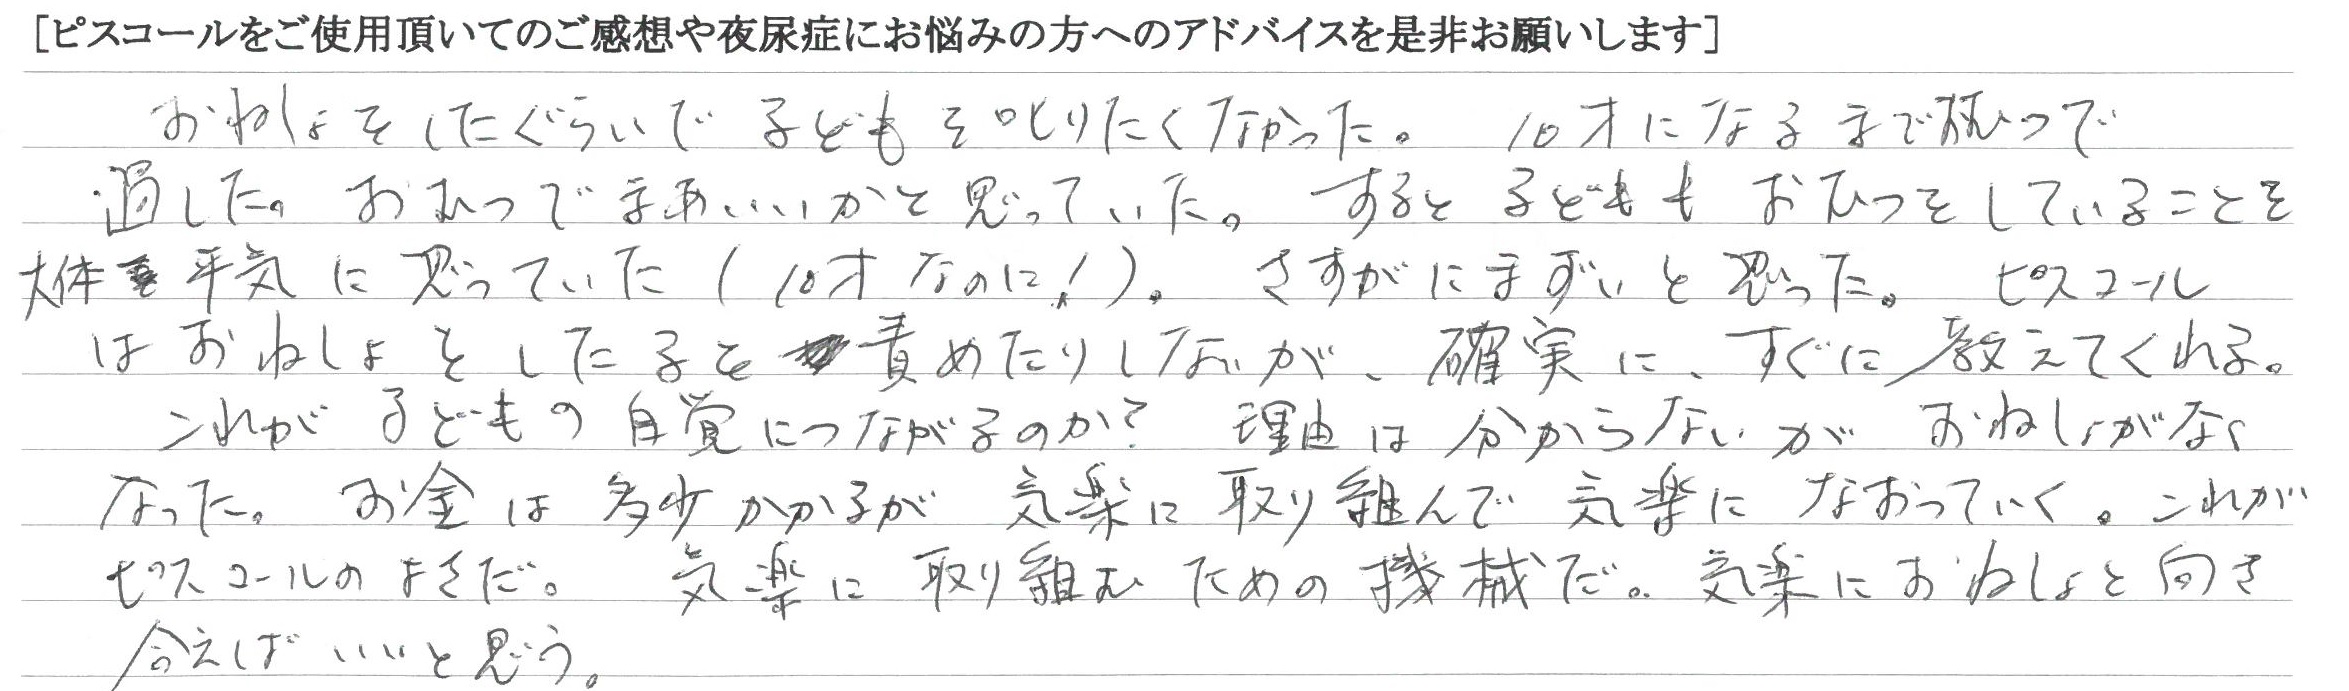 [ピスコールをご使用頂いてのご感想や夜尿症にお悩みの方へのアドバイスを是非お願いします]
おねしょをしたぐらいで子どもを叱りたくなかった。10才になるまでおむつで
過した。おむつでまあいいかと思っていた。すると子どももおむつをしていることを
大体平気に思っていた(10才なのに!)。さすがにまずいと思った。ピスコール
はおねしょをした子を責めたりしないが、確実に、すぐに教えてくれる。
これが子どもの自覚につながるのか?理由は分からないがおねしょがなく
なった。お金は多少かかるが気楽に取り組んで気楽になおっていく。これが
ピスコールのよさだ。気楽に取り組むための機械だ。気楽におねしょと向き
合えばいいと思う。